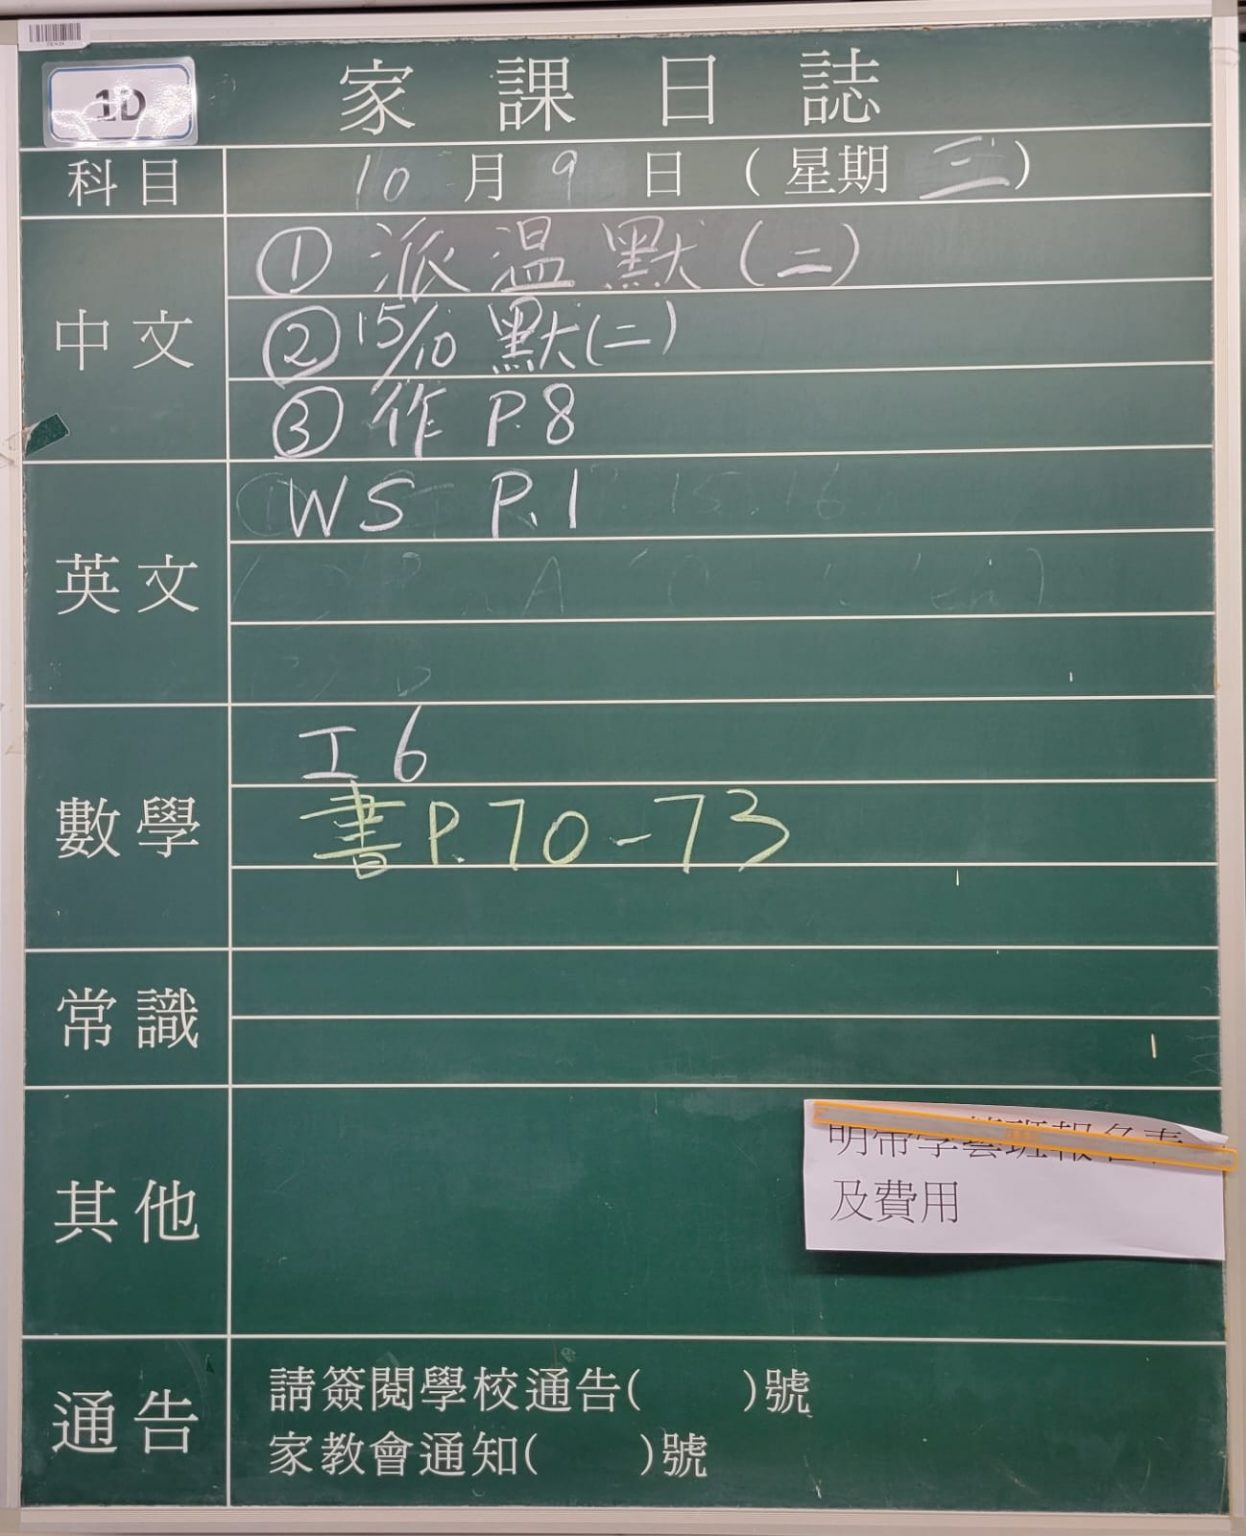 1D
家課日誌
科目 10月9日(星期三)
中文
①派溫默(二)
②15/10 默(二)
③作 P.8
英文
WS P.1
數學
工6
書P.70-73
常識
其他
明帶學藝班報名表
及費用
通告
請簽閱學校通告( )號
家教會通知( )號